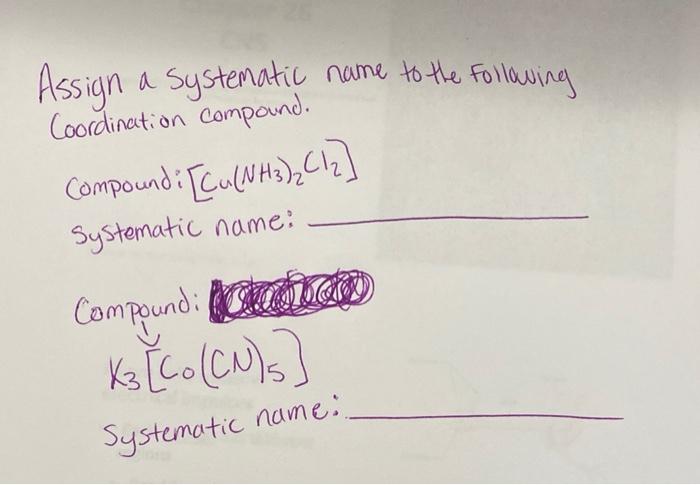 Assign a systematic name to the following
Coordination compound.
Compound: [Cu(NH3)2Cl2]
Systematic name:
Compound:
K3[Co(CN)5]
Systematic name: